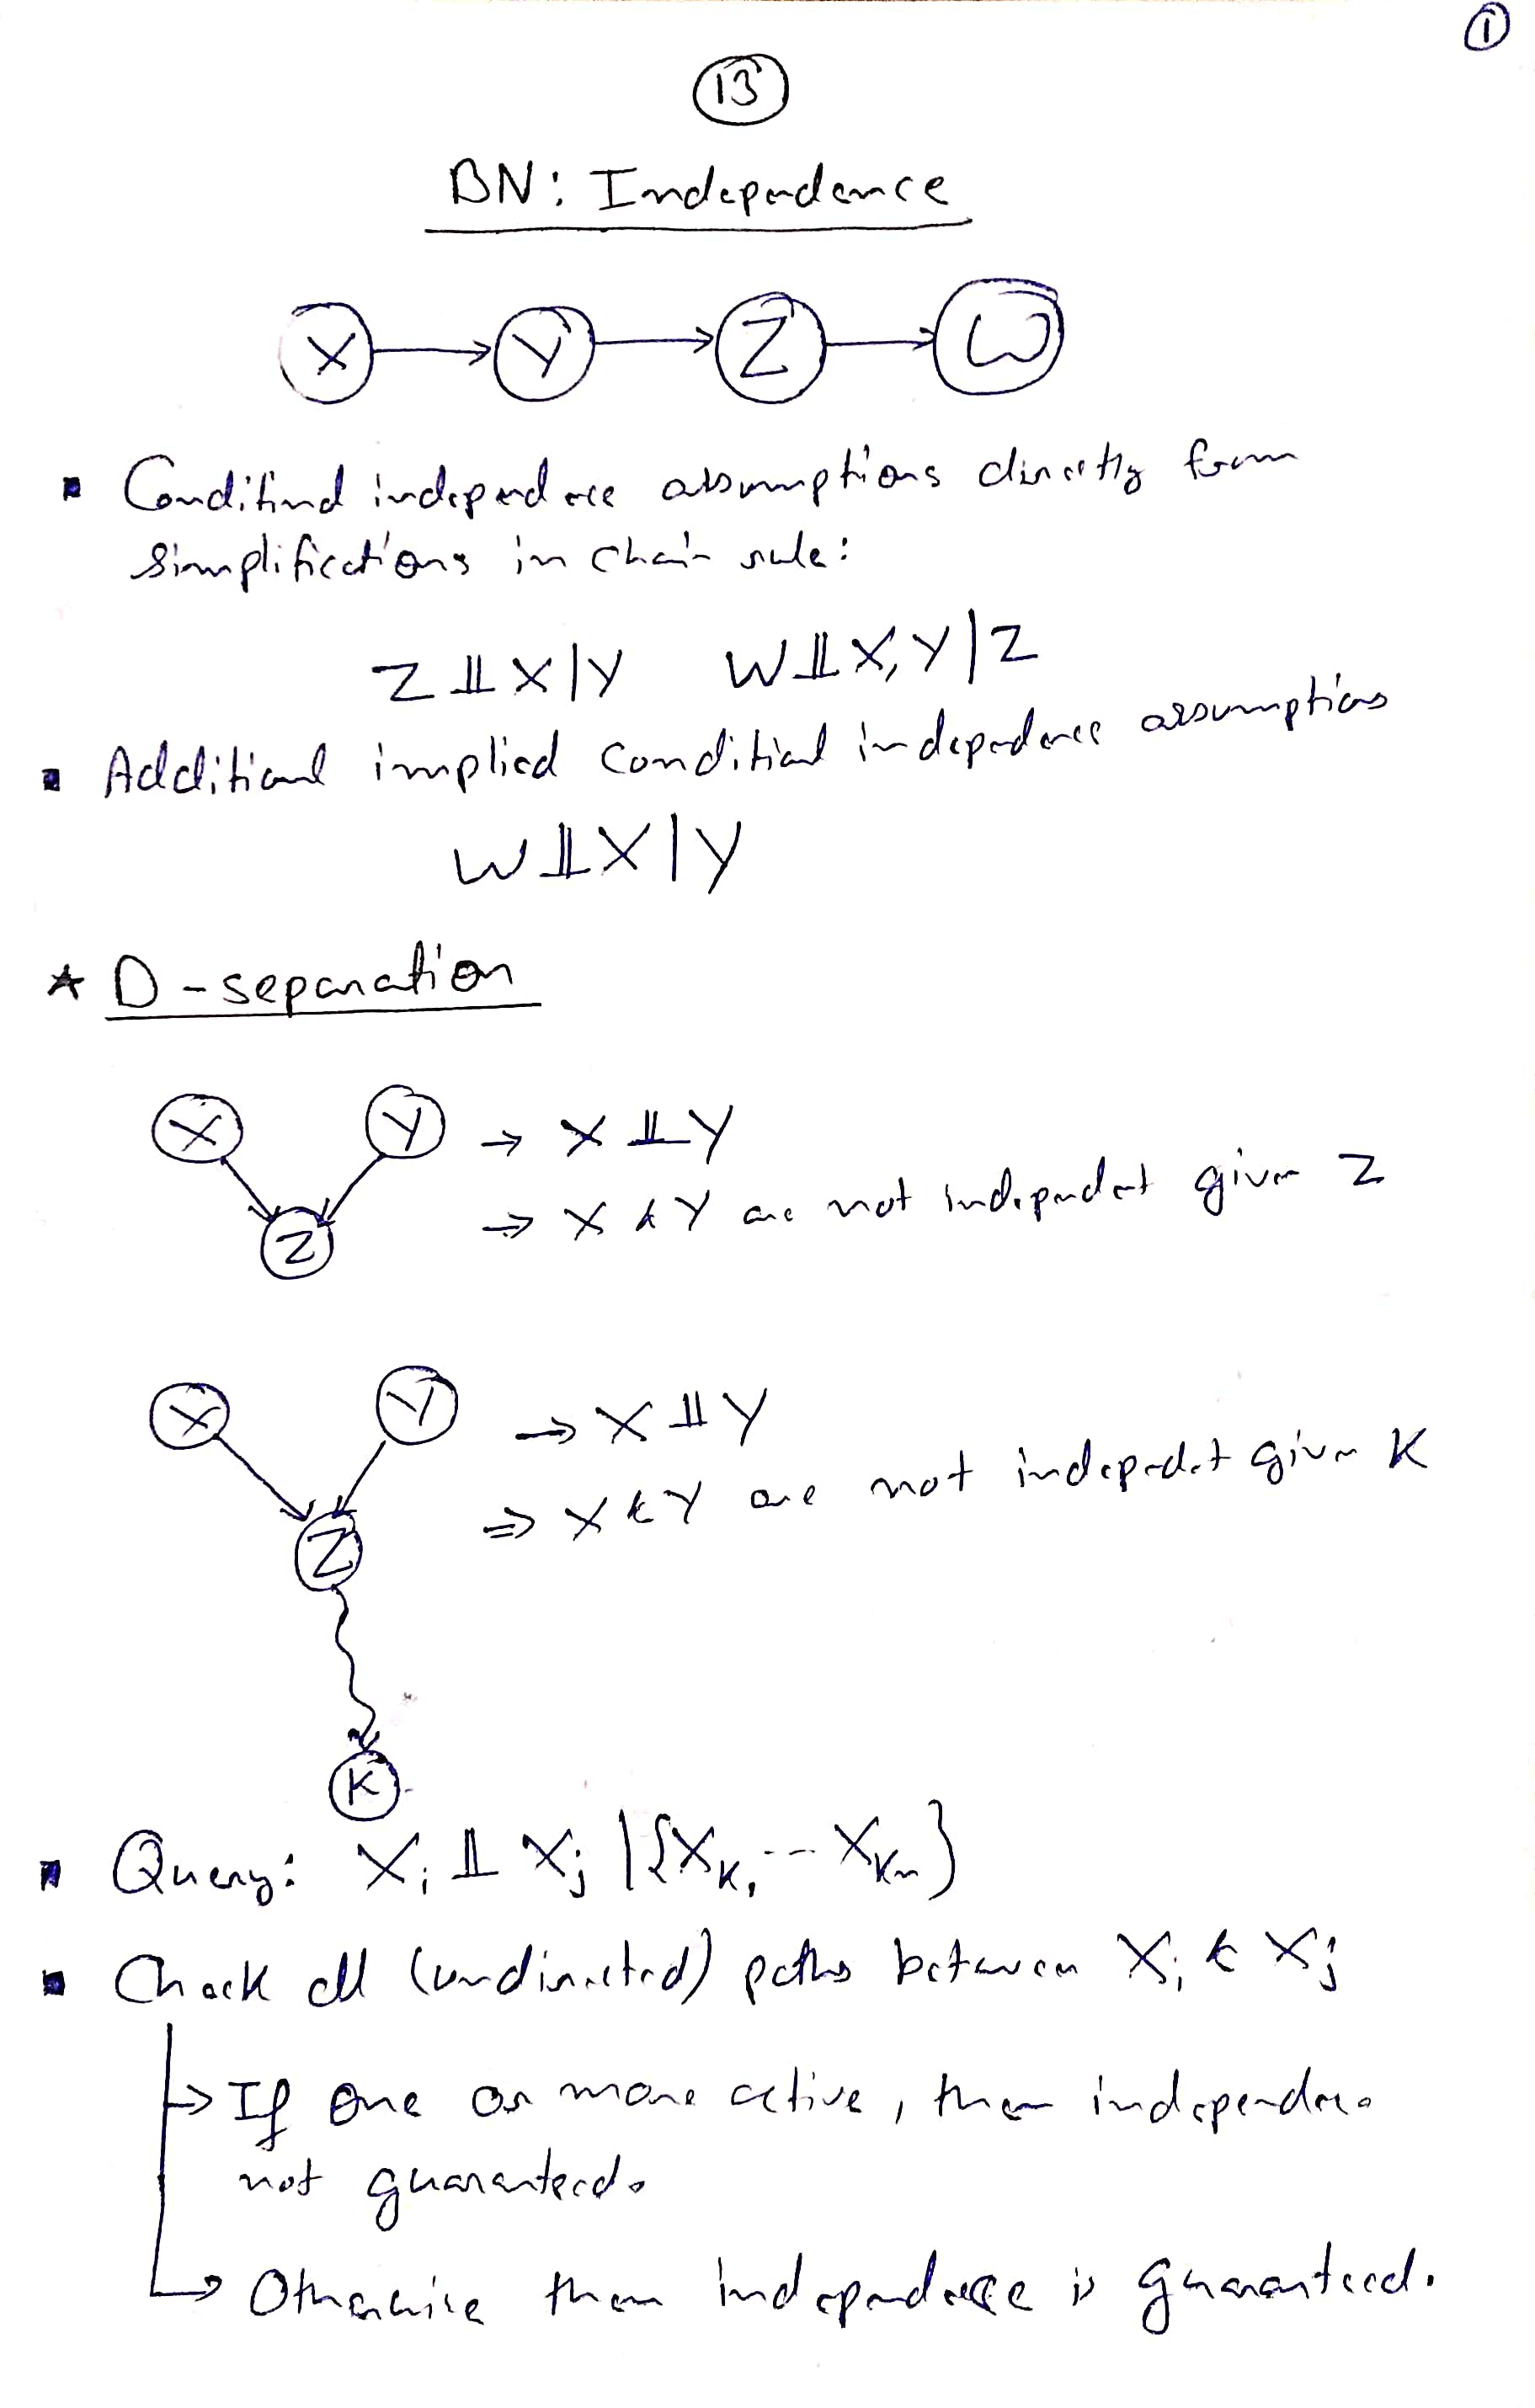 ①
⑬
BN: Independence
X → Y → Z → W
▪ Conditional independence assumptions directly from
simplifications in chain rule:
Z ⫫ X | Y    W ⫫ X, Y | Z
▪ Additional implied conditional independence assumptions
W ⫫ X | Y
* D-separation
X  Y  → X ⫫ Y
→ X & Y are not independent given Z
Z
X  Y  → X ⫫ Y
⇒ X & Y are not independent given K
Z
K
▪ Query: Xi ⫫ Xj | {Xk1 -- Xkn}
▪ Check all (undirected) paths between Xi & Xj
→ If one or more active, then independence
not guaranteed.
→ Otherwise then independence is guaranteed.